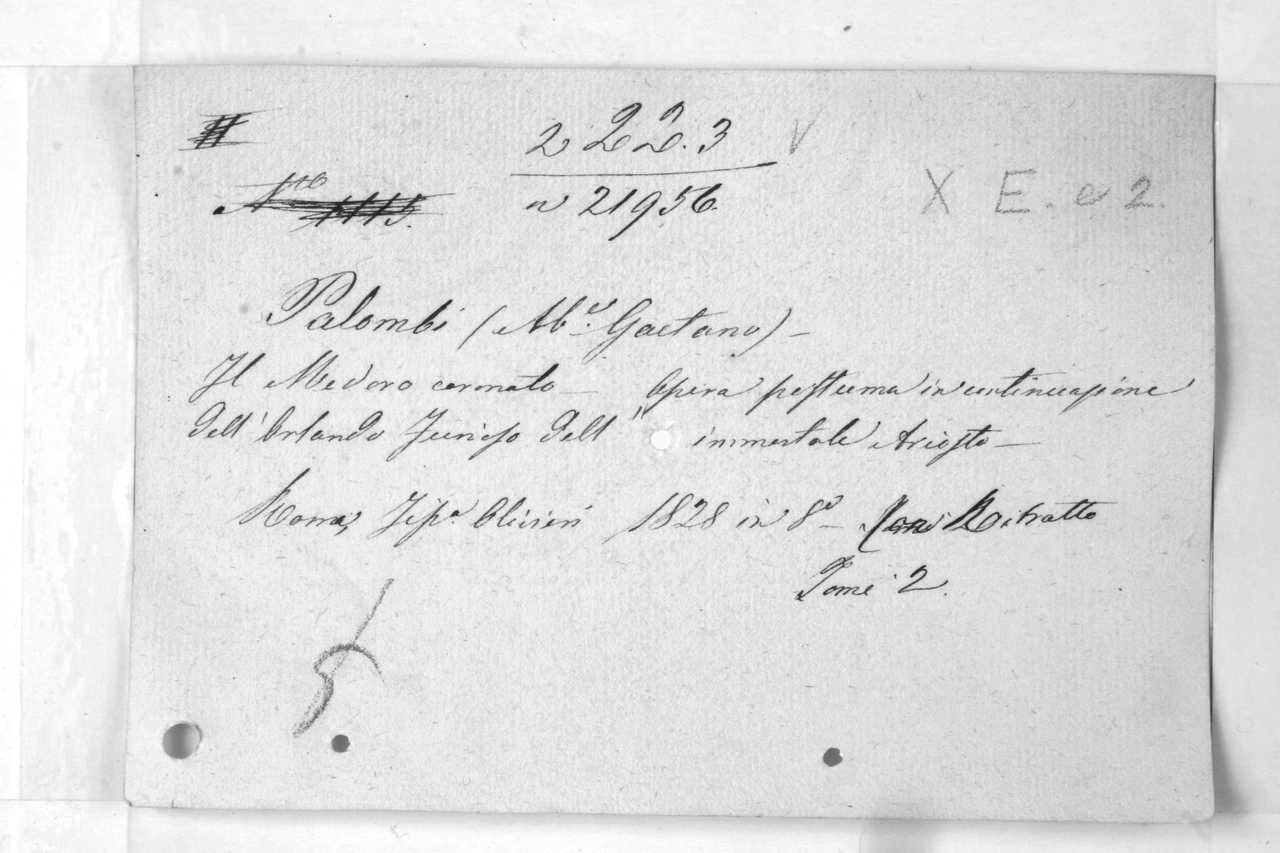 2 2 2. 3 V
n 21956.
X E. e 2.
Palombi (Ab.e Gaetano) –
Il Medoro coronato – Opera postuma in continuazione
dell'Orlando Furioso dell' immortale Ariosto –
Roma, Tip.a Olivieri 1828 in 8o – Con Ritratto
Tomi 2.